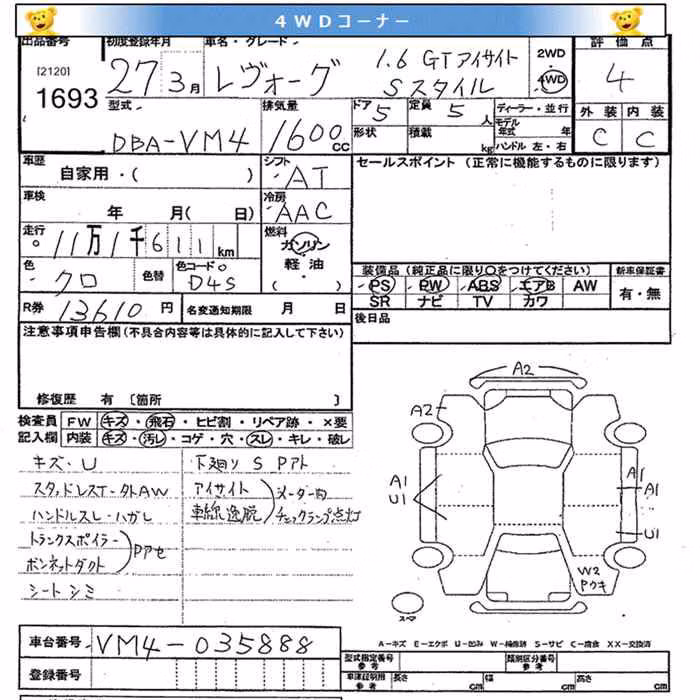 4WDコーナー
出品番号 初度登録年月 車名・グレード 評価点
[2120] 1693 27 3月 レヴォーグ 1.6 GTアイサイト Sスタイル 2WD 4WD 4
型式 排気量 ドア 定員 ディーラー・並行 外装 内装
DBA-VM4 1600cc 5 5人 モデル年式 年 C C
形状 積載 kg ハンドル 左・右
車歴 シフト セールスポイント (正常に機能するものに限ります)
自家用・( ) AT
車検 冷房
年 月( 日) AAC
走行 燃料
11万1千611km ガソリン
軽油・( )
色 色替 色コード 装備品 (純正品に限り○をつけてください) 新車保証書
クロ D4S PS PW ABS エアB AW 有・無
SR ナビ TV カワ
R券 13610円 名変通知期限 月 日 後日品
注意事項申告欄(不具合等は具体的に記入して下さい)
修復歴 有 〔箇所 〕
検査員 FW キズ・飛石・ヒビ割・リペア跡・×要
記入欄 内装 キズ・汚レ・コゲ・穴・スレ・キレ・破レ
キズ・U 下廻り S Pアト
スタッドレスT・タトAW アイサイト メーター内
ハンドルスレ・ハガレ 車線逸脱 チェックランプ点灯
トランクスポイラー
ボンネットダクト Pアセ
シートシミ
A2
A2
A1 U1
A1 A1
U1
W2 Pウキ
スマ
A-キズ E-エクボ U-凹み W-補修跡 S-サビ C-腐食 XX-交換済
車台番号 VM4-035888
登録番号
型式指定番号 参考 類別区分番号 参考
車庫証明用 参考 長さ cm 幅 cm 高さ cm